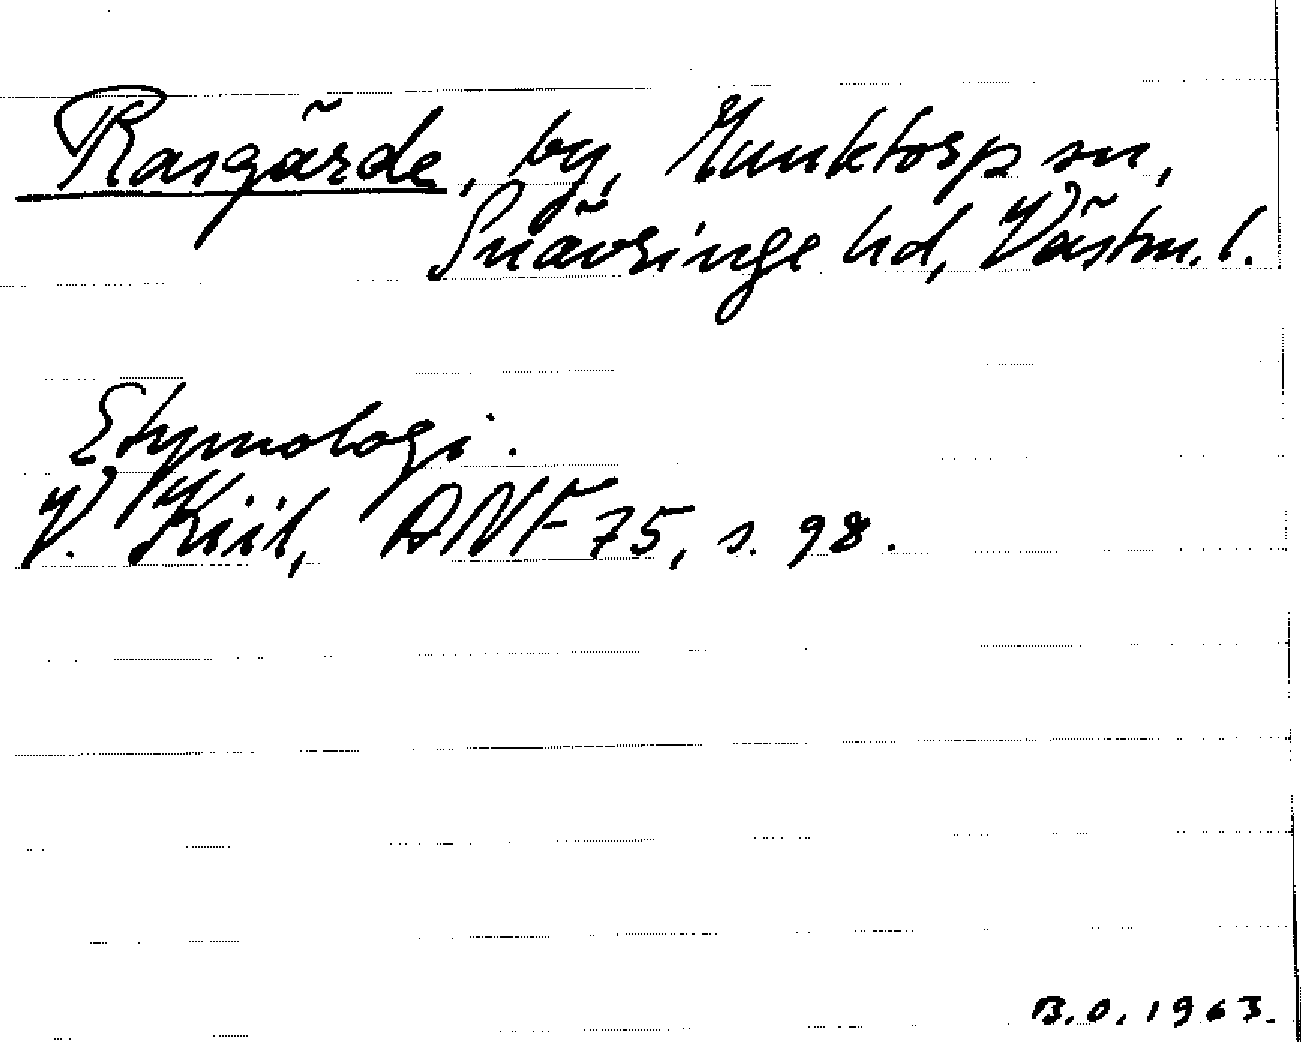 Rasgärde, by, Munktorp sn,
Snävringe hd, Västm. l.
Etymologi.
V. Kiil, ANF 75, s. 98.
B.O. 1963.